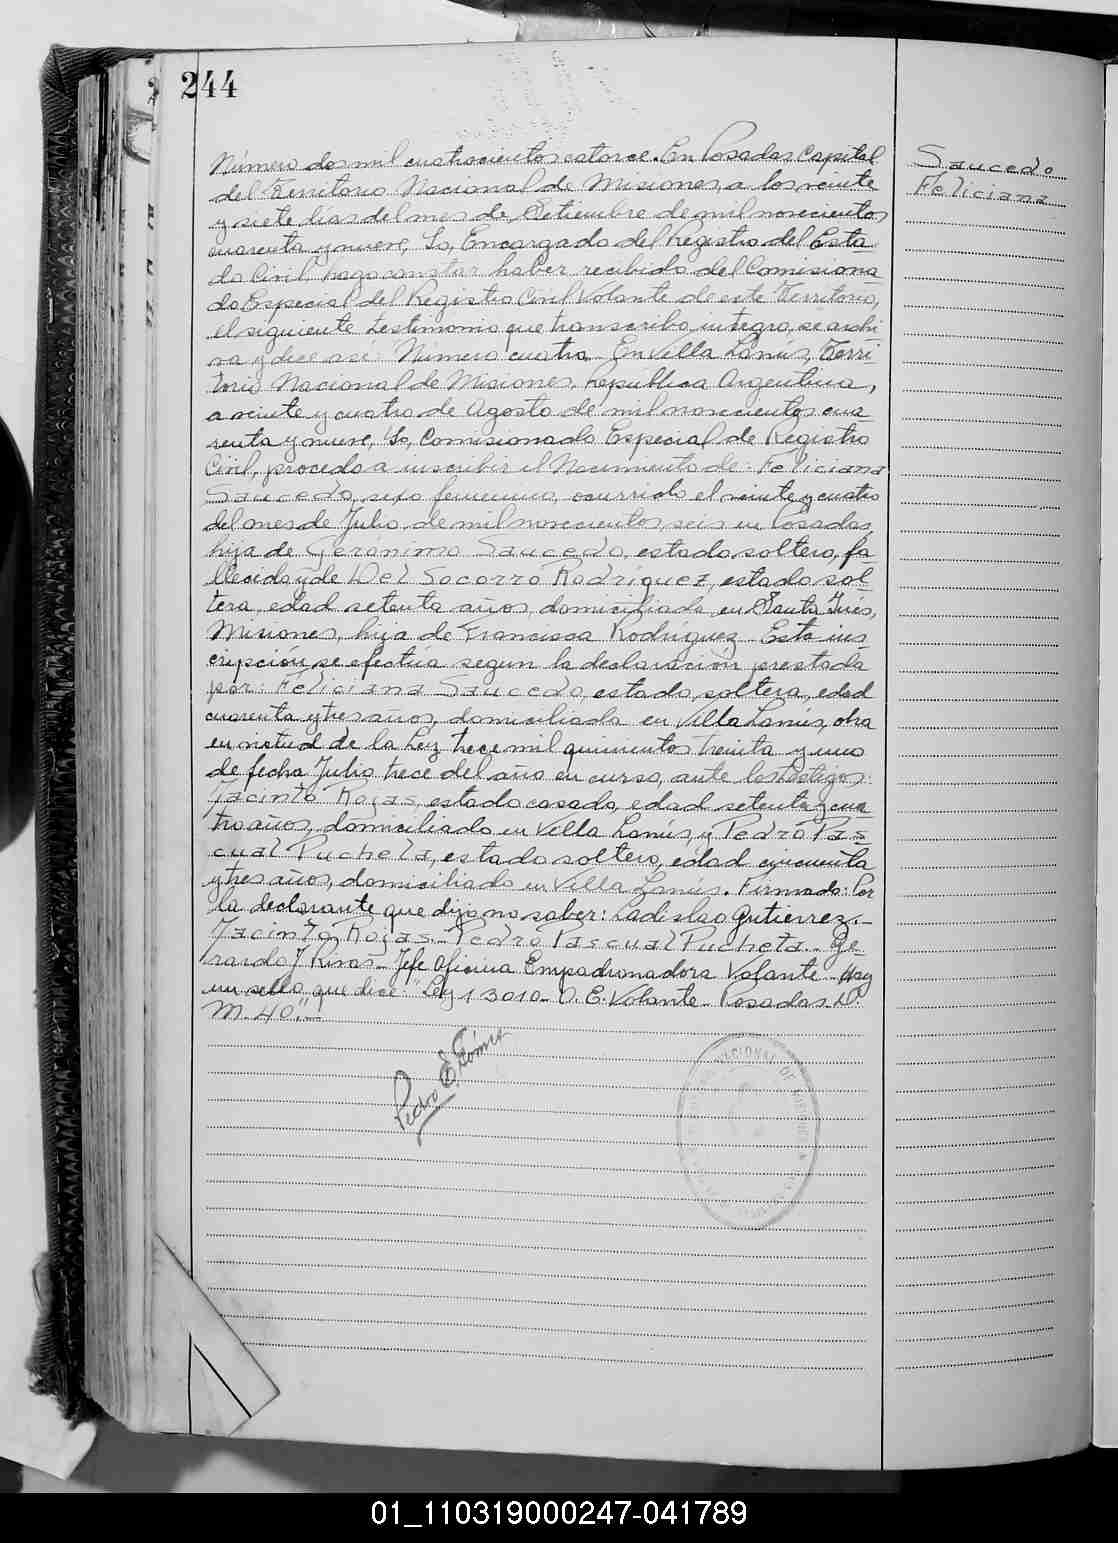 244
Saucedo
Feliciana
Número dos mil cuatrocientos catorce. En Posadas Capital
del Territorio Nacional de Misiones, a los veinte
y siete días del mes de Setiembre de mil novecientos
cuarenta y nueve, Yo, Encargado del Registro del Esta-
do Civil, hago constar haber recibido del Comisiona-
do Especial del Registro Civil Volante de este Territorio,
el siguiente testimonio que transcribo integro, se archi-
va y dice así: Número cuatro. En Villa Lanús, Terri-
torio Nacional de Misiones, República Argentina,
a veinte y cuatro de Agosto de mil novecientos cua-
renta y nueve, Yo, Comisionado Especial de Registro
Civil, procedo a inscribir el Nacimiento de: Feliciana
Saucedo, sexo femenino, ocurrido el veinte y cuatro
del mes de Julio de mil novecientos seis en Posadas,
hija de Gerónimo Saucedo, estado soltero, fa-
llecido y de Del Socorro Rodríguez, estado sol-
tera, edad setenta años, domiciliada en Santa Inés,
Misiones, hija de Francisca Rodríguez. Esta ins-
cripción se efectúa segun la declaración prestada
por: Feliciana Saucedo, estado soltera, edad
cuarenta y tres años, domiciliada en Villa Lanús,
en virtud de la Ley trece mil quinientos treinta y uno
de fecha Julio trece del año en curso, ante los testigos:
Jacinto Rojas, estado casado, edad setenta y cua-
tro años, domiciliado en Villa Lanús, y Pedro Pas-
cual Pucheta, estado soltero, edad cincuenta
y tres años, domiciliado en Villa Lanús. Firmado: Por
la declarante que dijo no saber: Ladislao Gutierrez.-
Jacinto Rojas.- Pedro Pascual Pucheta.- Ge-
rardo J Rivas - Jefe Oficina Empadronadora Volante - Hay
un sello que dice: "Ley 13010 - O. E. Volante - Posadas - D.
M. 40."-
Pedro E. Gómez
NACIONAL DE MISIONES
01_110319000247-041789